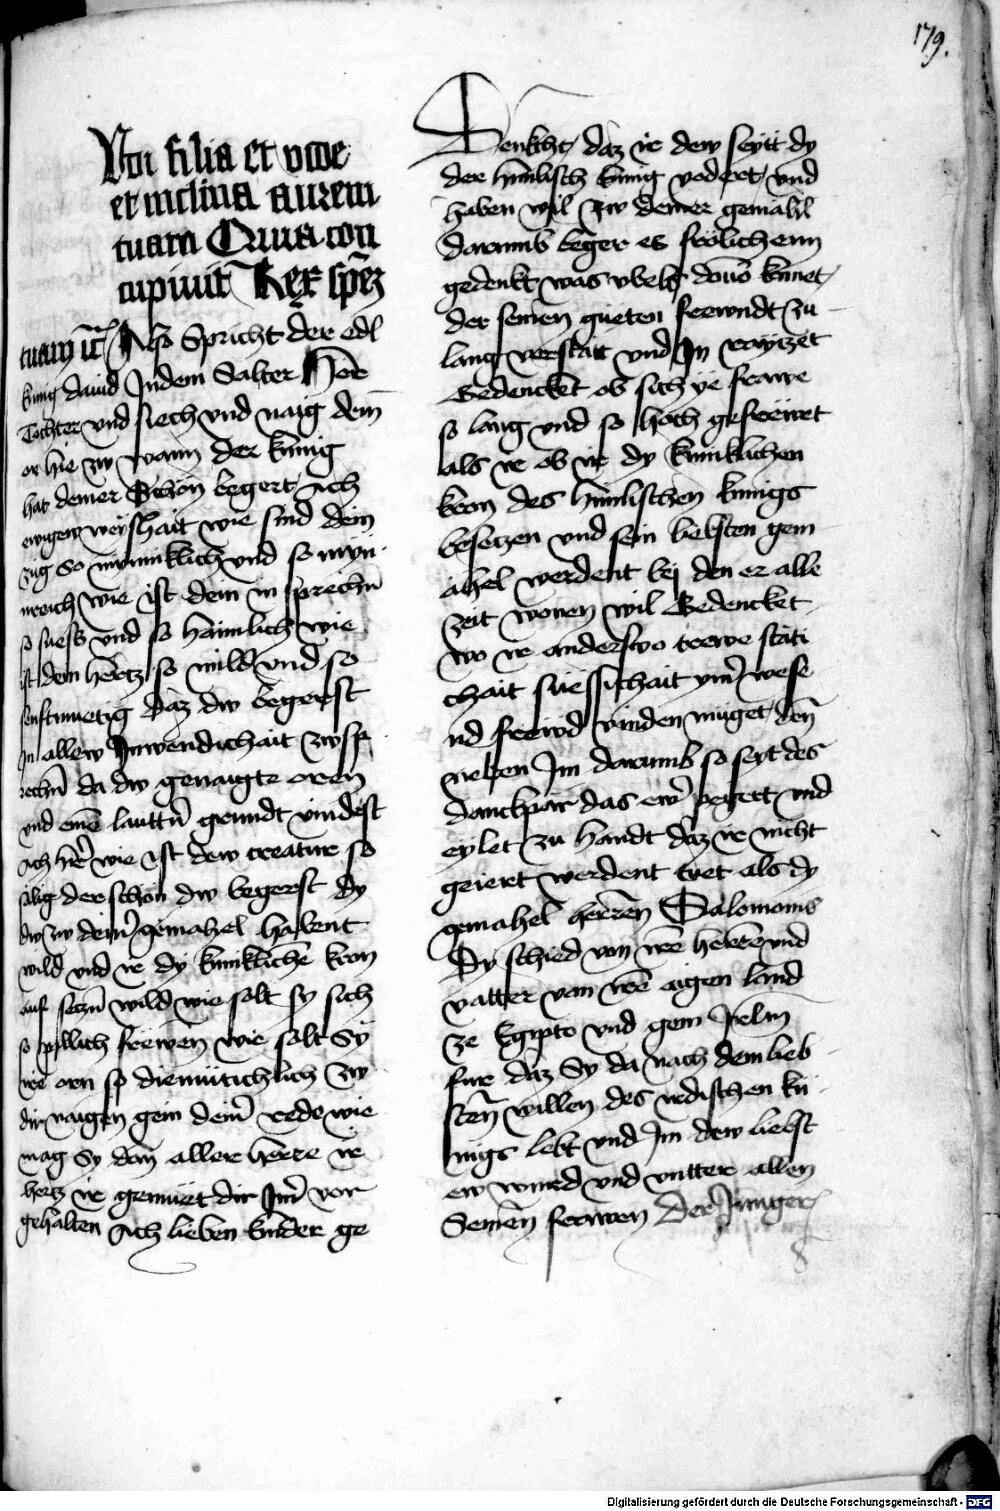 179.
Audi filia et vide
et inclina aurem
tuam Quia con
cupiuit Rex spēz
tuam Also Spricht der edl
kunig dauid Jndem Salter Hör
Tochter vnd siech vnd naig dein
or hie zw wann der kunig
hat deiner Schön begert Ach
ewigew weyshait wie sind dein
zug so mynniklich vnd so myn
nreich wie ist dein in sprechn̄
so suess vnd so haimlich wie
ist dein hertz so mild vnd so
senftmuetig daz dw begerst
Jn allew Jnwendichait zw sp
rechn̄ da dw genaigte oren
vnd ainē lauttn̄ grundt vindest
Ach h̄re wie ist dew creatur so
sälig der schön dw begerst dy
dw zw deinr̄ gemahel habent
wild vnd ir dy kunkliche kron
auf seczn̄ wild wie solt sy sich
so pillich frewen wie solt Sy
ire orn so diemütichlich zw
dir naigen gein deinr̄ rede wie
mag Sy dan aller herre ir
hertz ir gemüet dir Jm̄r vor
gehalten Ach lieben kinder ge
Denkcht daz ir dew seytt dy
der himlisch kunig vodert vnd
haben wil zw deiner gemahl
darumb beger es frölichenn
gedenkt was vbels dauō kumet
der seinen güeten frewndt zu
lang verstatt vnd Jn rayczet
Gedencket ob sich ye frawe
so lang vnd so hoch gefrewet
als ir ob ir dy kunklichen
kron des himlischen kunigs
besetzen vnd sein liebsten gem
ahel werdent bej den er alle
zeit wonen wil Gedencket
wo ir anderswo trewe stäti
chait suessichait ym̄r wese
nd frewd vinden müget den̄
neben Jm darumb so seyt des
danckpär das ewr̄ begert vnd
eylet zu handt daz ir nicht
geiert werdent tuet als dy
gemahel herren Salomonis
Dy schied von irē herrn vnd
vatter von irē aigen land
ze Egipto vnd gein Jrlm
fuer daz Sy da nach dem lieb
sten̄ willen des irdischen ku
nigs lebt vnd Jm dew liebst
ew wurd vnd vntter allen
Seinen frawen Der Junger